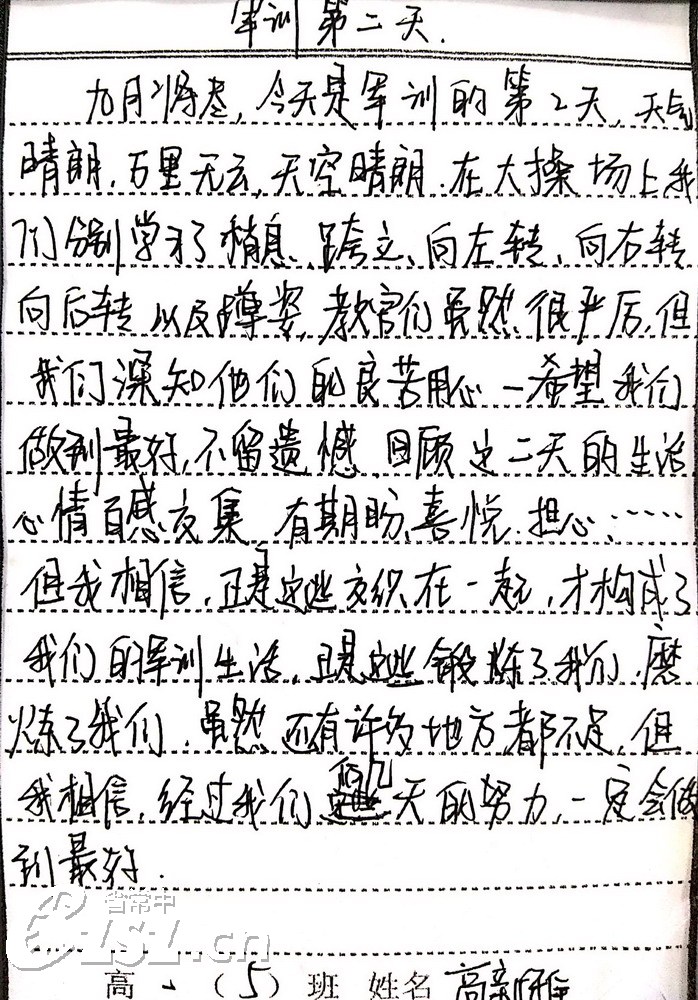 军训第二天.
九月将尽,今天是军训的第2天,天气
晴朗,万里无云,天空晴朗.在大操场上我
们分别学习了稍息、跨立、向左转、向右转
向后转以及蹲姿,教官们虽然很严厉,但
我们深知他们的良苦用心一希望我们
做到最好,不留遗憾.回顾这二天的生活
心情百感交集,有期盼、喜悦、担心……
但我相信,正是这些交织在一起,才构成了
我们的军训生活,正是这些锻炼了我们,磨
炼了我们,虽然还有许多地方都不足,但
我相信,经过我们何几天的努力,一定会做
到最好.
省常中
CZSZ.cn
高一(5)班 姓名 高新雅